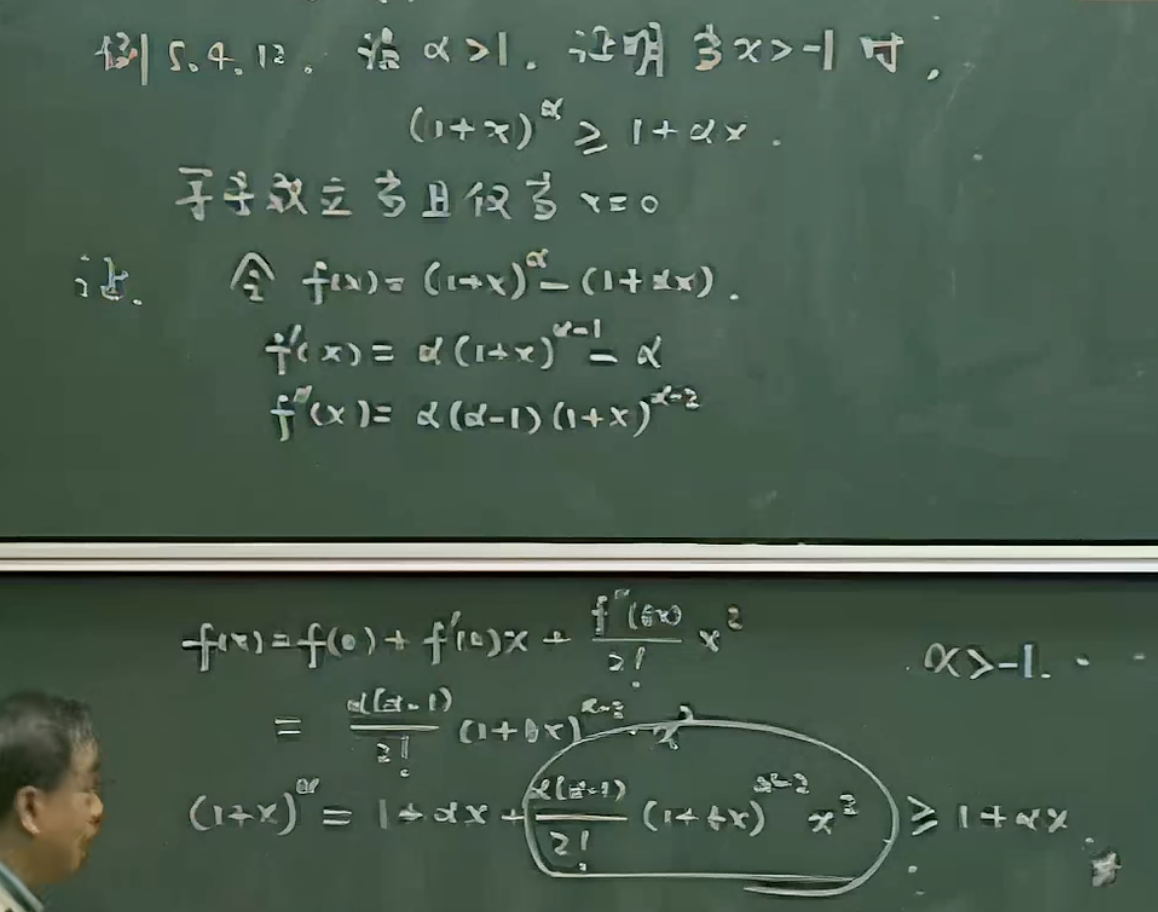 例5.4.12. 设 α>1. 证明 当 x>-1 时,
(1+x)^α ≥ 1+αx.
等号成立当且仅当 x=0
证. 令 f(x)=(1+x)^α-(1+αx).
f'(x)=α(1+x)^{α-1}-α
f''(x)=α(α-1)(1+x)^{α-2}
f(x)=f(0)+f'(0)x+\frac{f''(θx)}{2!}x^2
x>-1.
=\frac{α(α-1)}{2!}(1+θx)^{α-2}·x^2
(1+x)^α=1+αx+\frac{α(α-1)}{2!}(1+θx)^{α-2}x^2 ≥ 1+αx.